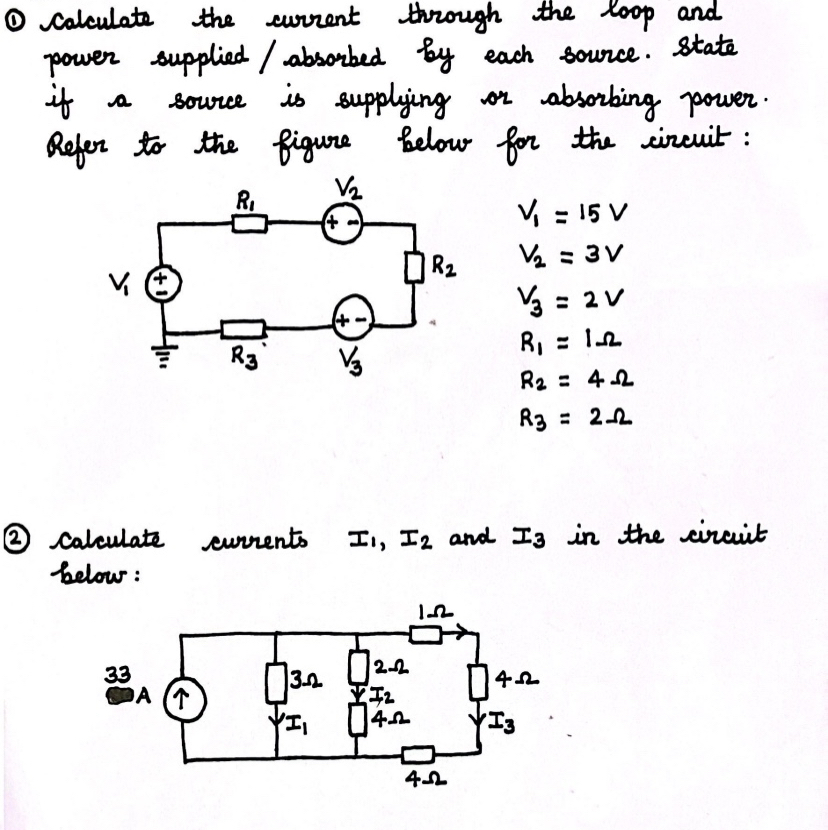 ① Calculate the current through the loop and
power supplied / absorbed by each source. State
if a source is supplying or absorbing power.
Refer to the figure below for the circuit :
R₁
V₂
+ -
V₁
+
-
R₂
+ -
R₃
V₃
V₁ = 15 V
V₂ = 3 V
V₃ = 2 V
R₁ = 1Ω
R₂ = 4Ω
R₃ = 2Ω
② Calculate currents I₁, I₂ and I₃ in the circuit
below :
1Ω
33
A
3Ω
I₁
2Ω
I₂
4Ω
4Ω
I₃
4Ω